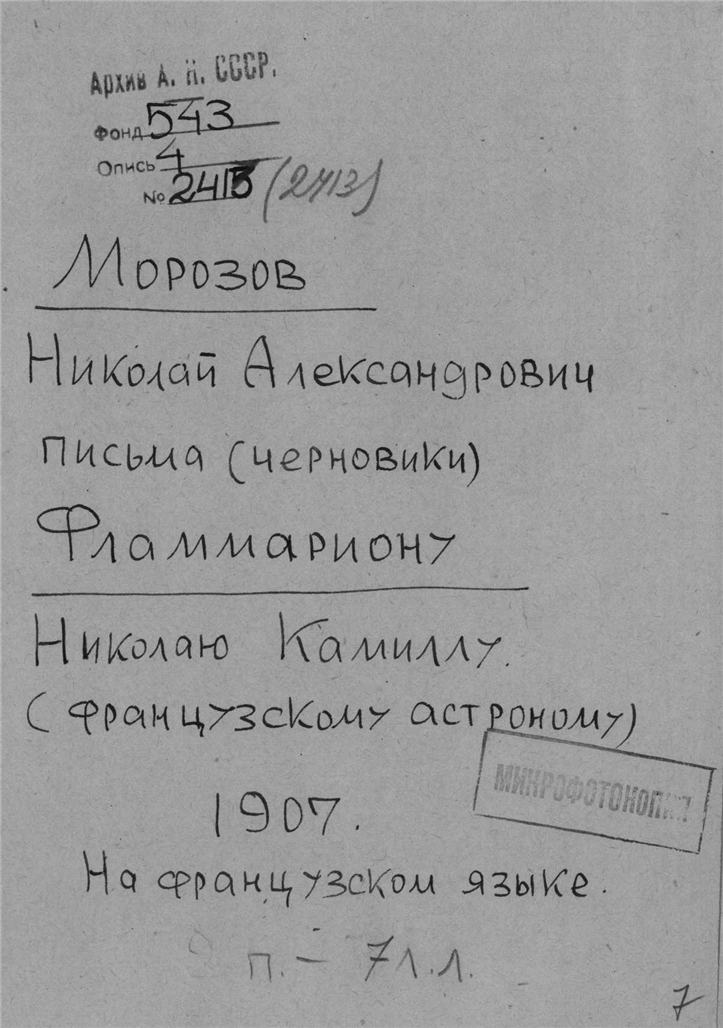 Архив А. Н. СССР.
Фонд 543
Опись 4
№ 2413 (2413)
Морозов
Николай Александрович
письма (черновики)
Фламмариону
Николаю Камиллу.
(французскому астроному)
МИКРОФОТОКОПИЯ
1907.
На французском языке.
п. – 7 л.л.
7